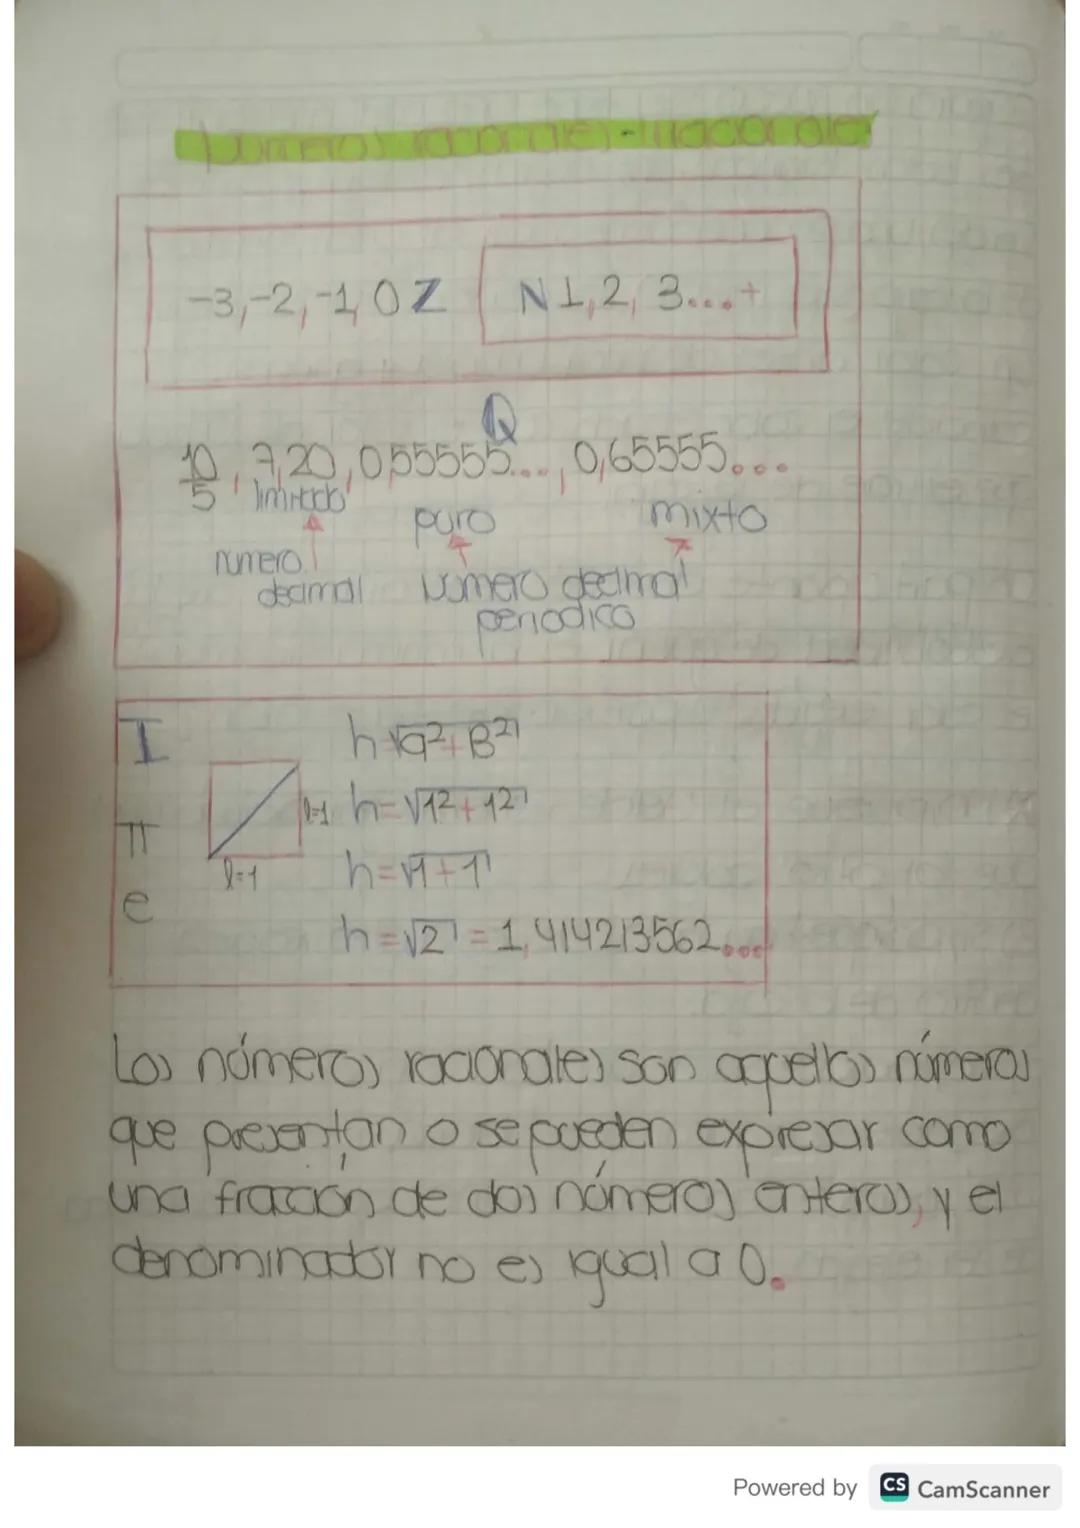 Números racionales-irracionales
-3,-2,-1,0 Z N 1, 2, 3...+
Q
10/5, 7,20, 0,55555..., 0,65555...
limitado puro mixto
numero decimal
Número decimal periodico
I h √a²+B²
l=1 h=√1²+1²
π
l=1 h=√1+1
e
h=√2=1,414213562...
Los números racionales son aquellos números
que presentan o se pueden expresar como
una fracción de dos números enteros, y el
denominador no es igual a 0.
Powered by CS CamScanner